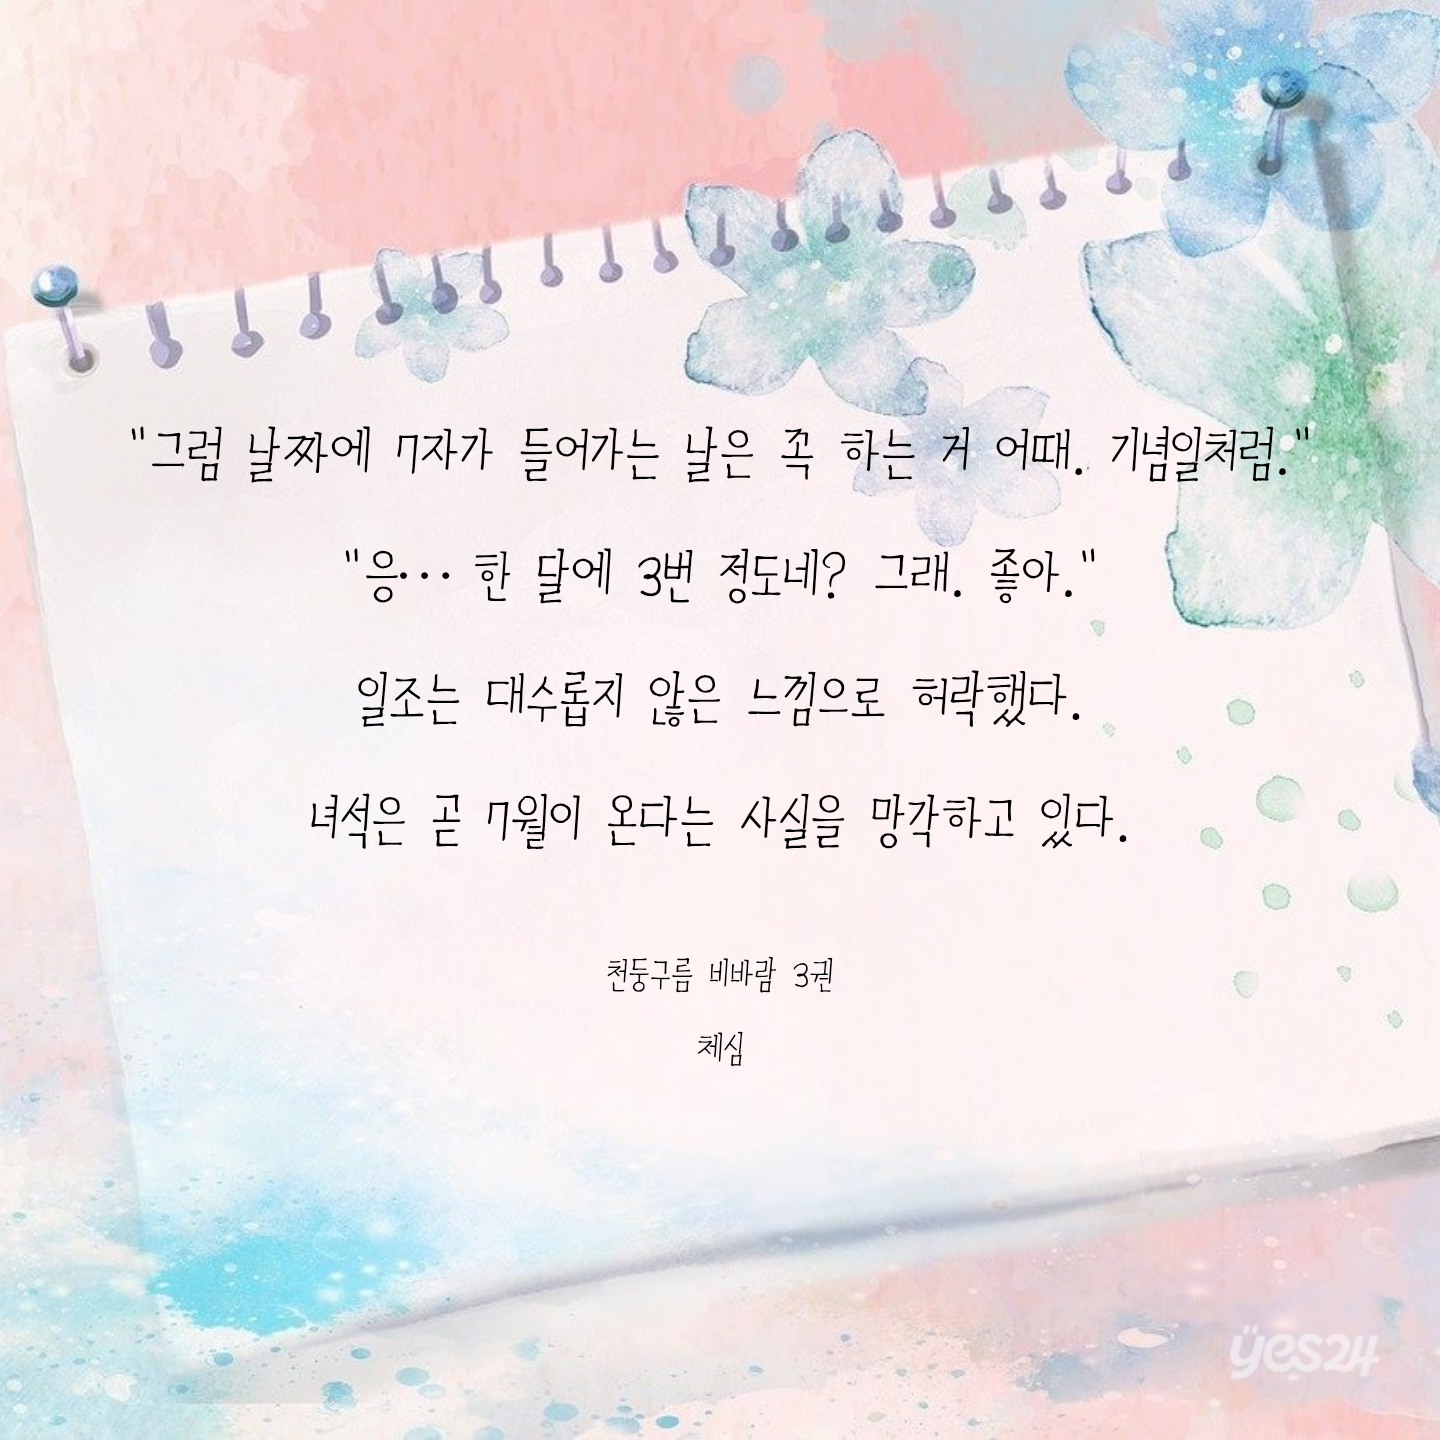 "그럼 날짜에 7자가 들어가는 날은 족 하는 거 어때. 기념일처럼."
"응… 한 달에 3번 정도네? 그래. 좋아."
일조는 대수롭지 않은 느낌으로 허락했다.
녀석은 곧 7월이 온다는 사실을 망각하고 있다.
천둥구름 비바람 3권
체심
yes24